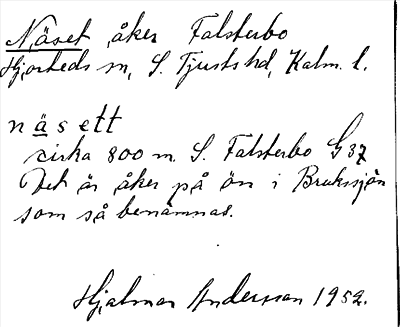 Näset, åker Falsterbo
Hjorteds sn, S. Tjusts hd, Kalm. l.
näsett
cirka 800 m. S. Falsterbo G 37
Det är åker på ön i Brukssjön
som så benämnas.
Hjalmar Andersson 1952.